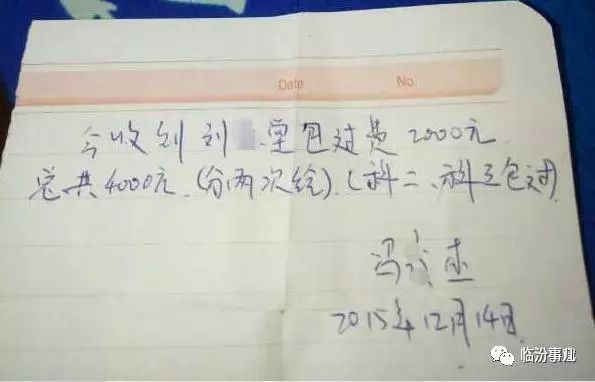 Date No.
今收到刘堂包过费2000元.
总共4000元.(分两次给).(科二、科三包过)
冯 杰
2015年12月14日
临汾事儿